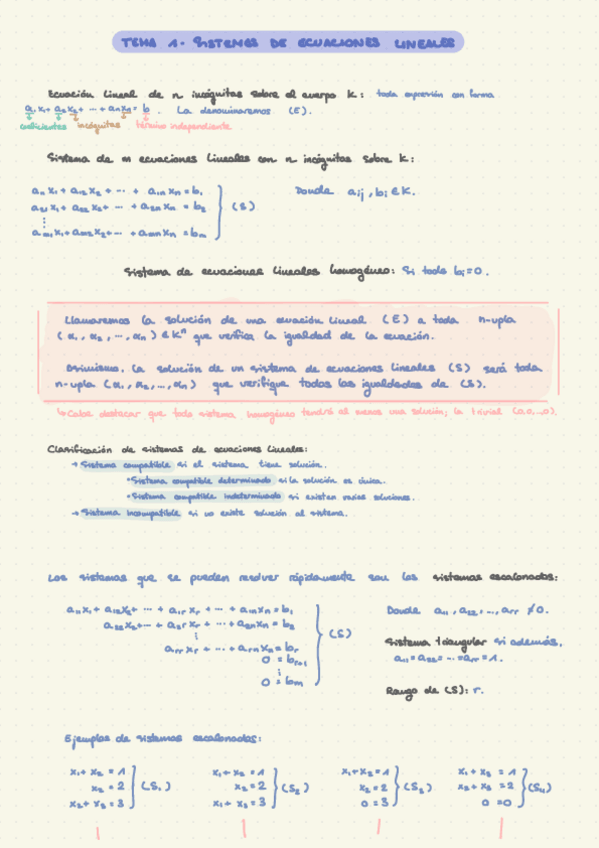 TEMA 1 - SISTEMES DE ECUACIONES LINEALES
Ecuación lineal de n incógnitas sobre el cuerpo K: toda expresión con forma
a₁x₁ + a₂x₂ + ... + aₙxₙ = b . La denominaremos (E).
coeficientes incógnitas término independiente
Sistema de m ecuaciones lineales con n incógnitas sobre K:
a₁₁x₁ + a₁₂x₂ + ... + a₁ₙxₙ = b₁
a₂₁x₁ + a₂₂x₂ + ... + a₂ₙxₙ = b₂
⋮
aₘ₁x₁ + aₘ₂x₂ + ... + aₘₙxₙ = bₘ
(S)
Donde aᵢⱼ, bᵢ ∈ K.
Sistema de ecuaciones lineales homogéneo: Si todo bᵢ = 0.
Llamaremos la solución de una ecuación lineal (E) a toda n-upla
(α₁, α₂, ..., αₙ) ∈ Kⁿ que verifica la igualdad de la ecuación.
Asimismo, la solución de un sistema de ecuaciones lineales (S) será toda
n-upla (α₁, α₂, ..., αₙ) que verifique todas las igualdades de (S).
↳ Cabe destacar que todo sistema homogéneo tendrá al menos una solución; la trivial (0,0,...0).
Clasificación de sistemas de ecuaciones lineales:
→ Sistema compatible si el sistema tiene solución.
• Sistema compatible determinado si la solución es única.
• Sistema compatible indeterminado si existen varias soluciones.
→ Sistema incompatible si no existe solución al sistema.
Los sistemas que se pueden resolver rápidamente son los sistemas escalonados:
a₁₁x₁ + a₁₂x₂ + ... + a₁ᵣxᵣ + ... + a₁ₙxₙ = b₁
a₂₂x₂ + ... + a₂ᵣxᵣ + ... + a₂ₙxₙ = b₂
⋮
aᵣᵣxᵣ + ... + aᵣₙxₙ = bᵣ
0 = bᵣ₊₁
⋮
0 = bₘ
(S)
Donde a₁₁, a₂₂, ..., aᵣᵣ ≠ 0.
Sistema triangular si además,
a₁₁ = a₂₂ = ... = aᵣᵣ = 1.
Rango de (S): r.
Ejemplos de sistemas escalonados:
x₁ + x₂ = 1
x₂ = 2
x₂ + x₃ = 3
(S₁)
x₁ + x₂ = 1
x₂ = 2
x₁ + x₃ = 3
(S₂)
x₁ + x₂ = 1
x₂ = 2
0 = 3
(S₃)
x₁ + x₃ = 1
x₂ + x₃ = 2
0 = 0
(S₄)